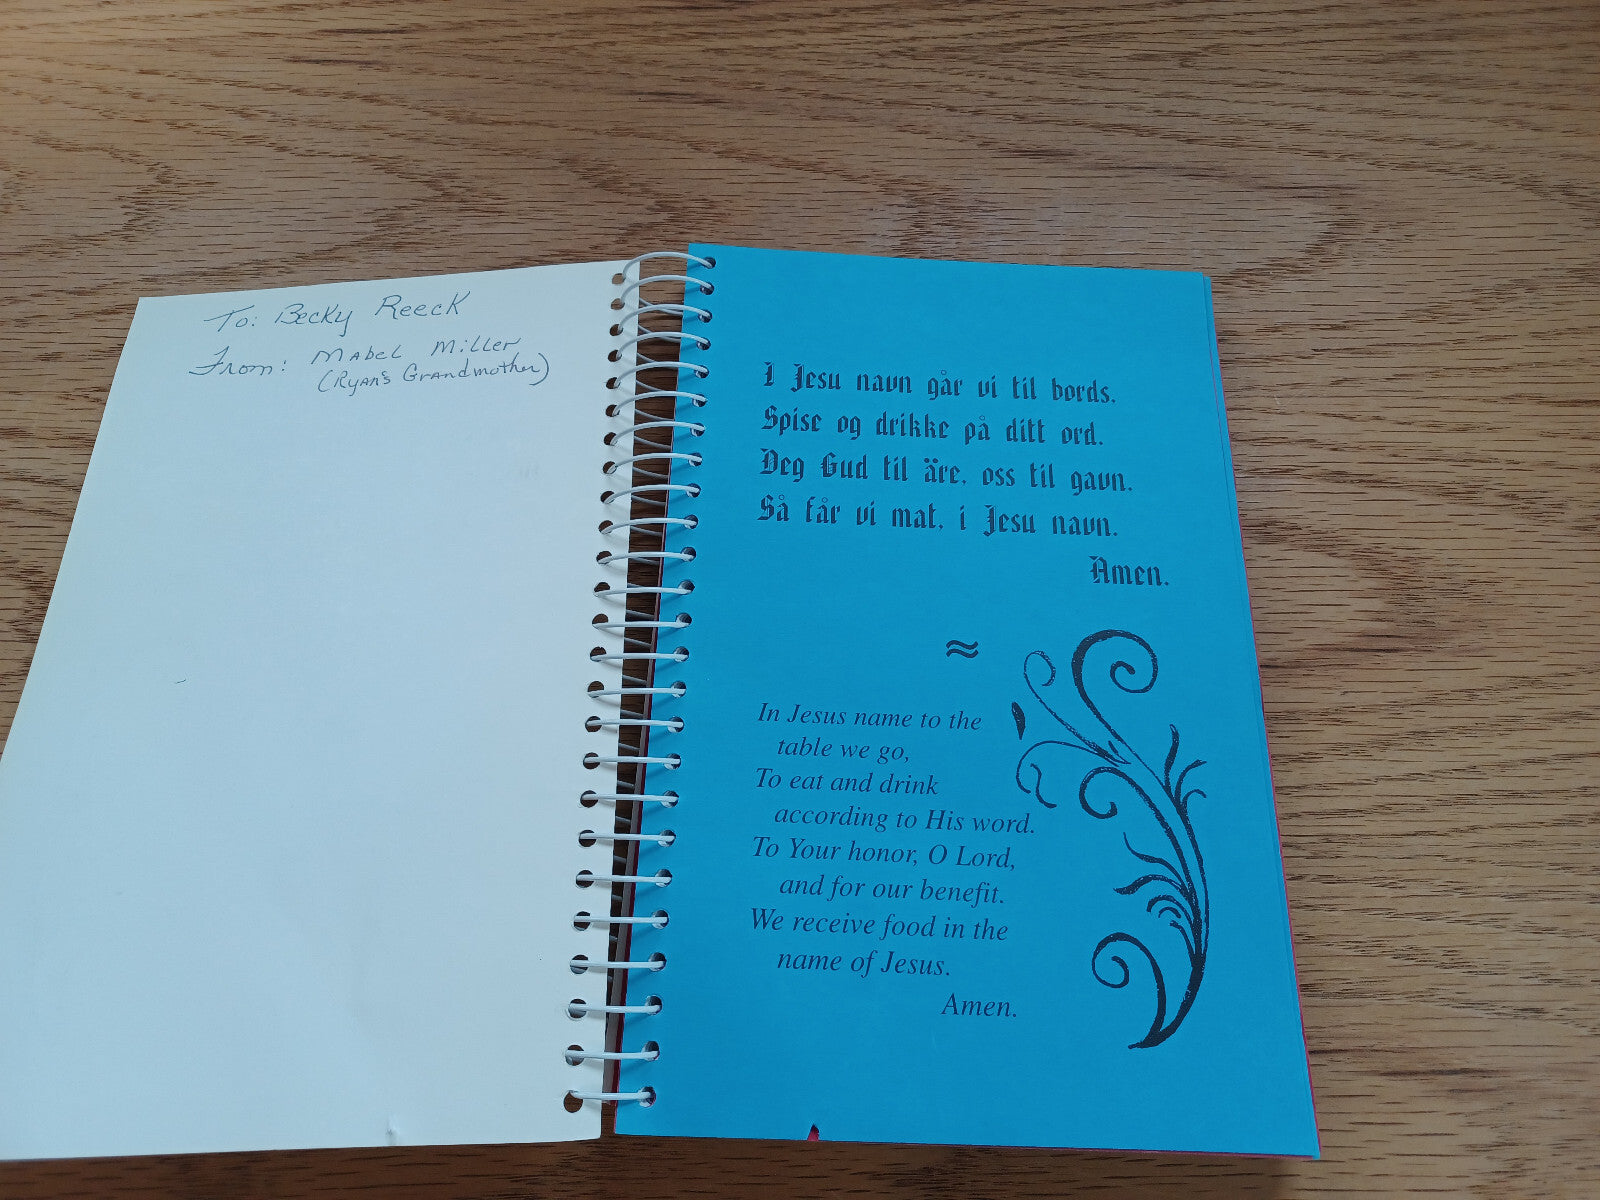 To: Becky Reeck
From: Mabel Miller
(Ryan's Grandmother)
I Jesu navn går vi til bords.
Spise og drikke på ditt ord.
Deg Gud til äre, oss til gavn.
Så får vi mat, i Jesu navn.
Amen.
≈
In Jesus name to the
table we go,
To eat and drink
according to His word.
To Your honor, O Lord,
and for our benefit.
We receive food in the
name of Jesus.
Amen.